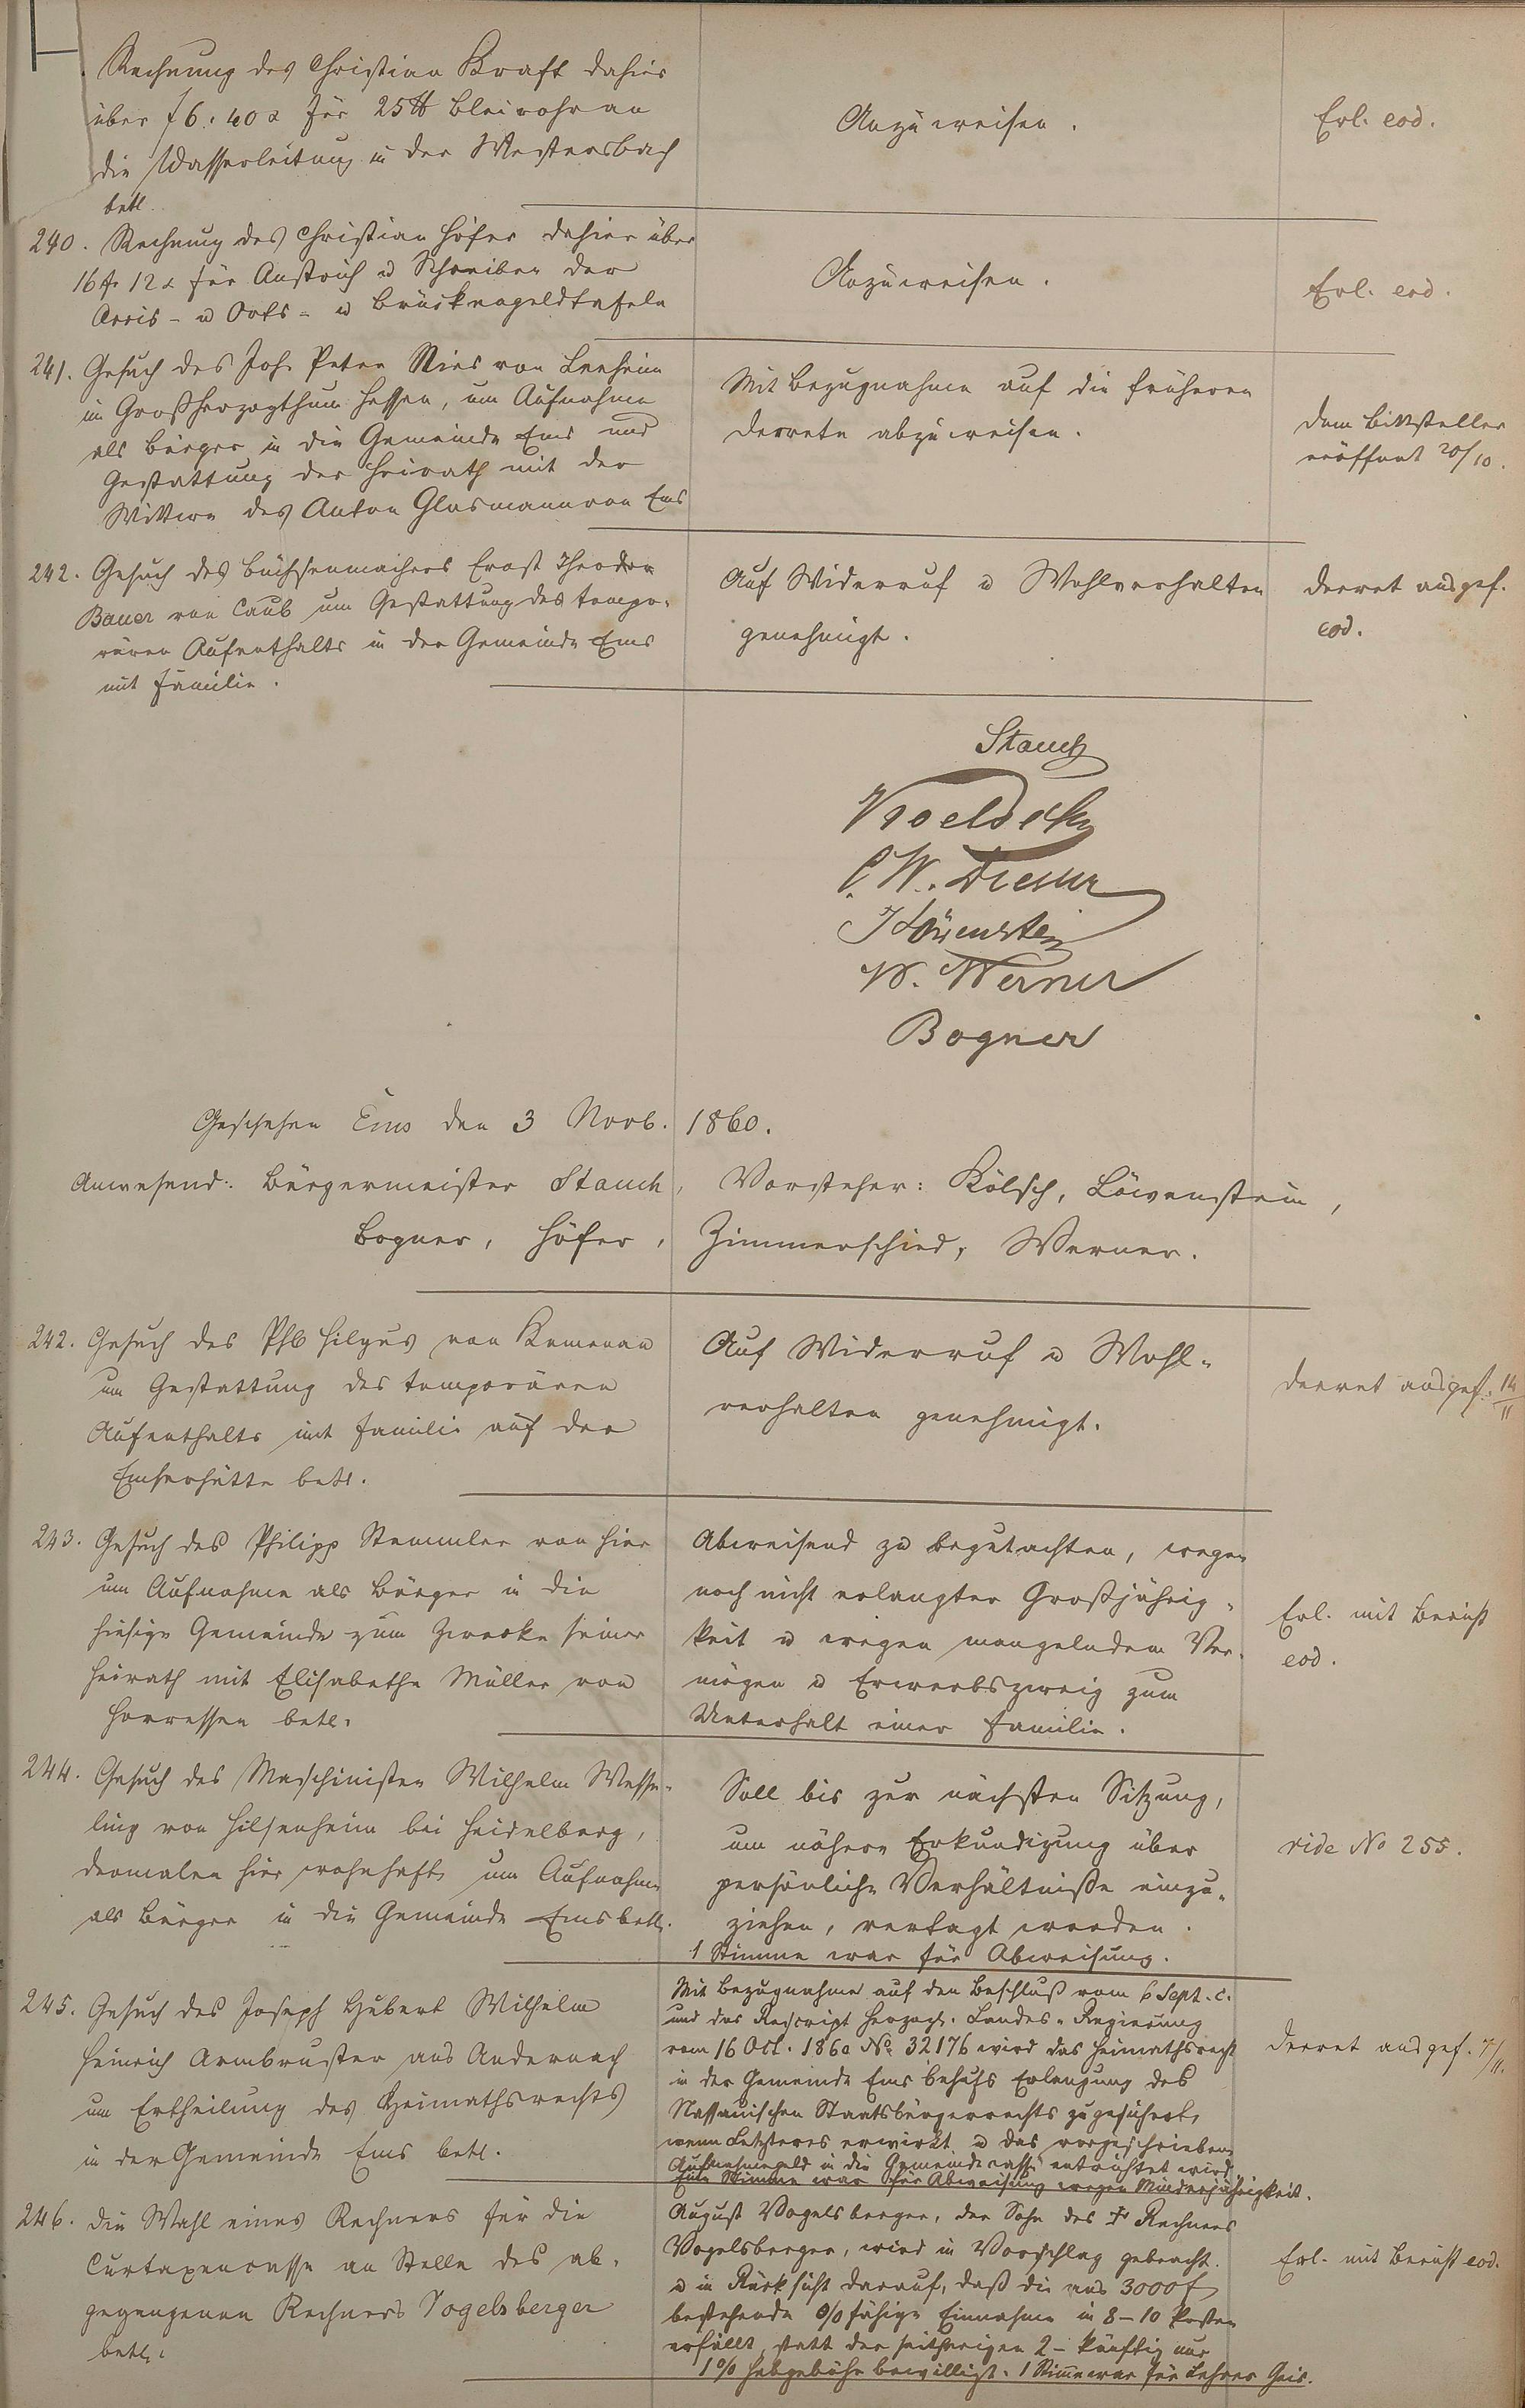 Rechnung des Christian Kraft dahier
über f 6. 40 x für 25 ℔ Bleirohr an
die Wasserleitung in der Westersbach
betl.
Anzuweisen.
Erl. eod.
240. Rechnung des Christian Höfer dahier über
16 fr 12 x für Anstrich u Schreiben der
Accis- u Orts- u Brückengeldtafeln
Anzuweisen.
Erl. eod.
241. Gesuch des Joh. Peter Nies von Leeheim
im Großherzogthum Hessen, um Aufnahme
als Bürger in die Gemeinde Ems und
Gestattung der Heirath mit der
Wittwe des Anton Glasmann von Ems
Mit Bezugnahme auf die früheren
Decrete abzuweisen.
Dem Bittsteller
eröffnet 20/10.
242. Gesuch des Büchsenmachers Ernst Theodor
Bauer von Caub um Gestattung des tempo-
rären Aufenthalts in der Gemeinde Ems
mit Familie.
Auf Widerruf u Wohlverhalten
genehmigt.
Decret ausgef.
eod.
Stauch
C. W.
Löwenstein
W. Werner
Bogner
Geschehen Ems den 3 Novb. 1860.
Anwesend: Bürgermeister Stauch, Vorsteher: Kölsch, Löwenstein,
Bogner, Höfer, Zimmerschied, Werner.
242. Gesuch des Phl Hilgus von Kemenau
um Gestattung des temporären
Aufenthalts mit Familie auf der
Emserhütte betl.
Auf Widerruf u Wohl-
verhalten genehmigt.
Decret ausgef. 14/11
243. Gesuch des Philipp Stemmler von hier
um Aufnahme als Bürger in die
hiesige Gemeinde zum Zwecke seiner
Heirath mit Elisabethe Müller von
Horressen betl.
Abweisend zu begutachten, wegen
noch nicht erlangter Großjährig-
keit u wegen mangelndem Ver-
mögen u Erwerbszweig zum
Unterhalt einer Familie.
Erl. mit Bericht
eod.
244. Gesuch des Maschinisten Wilhelm Wesse-
ling von Hilsenheim bei Heidelberg,
dermalen hier wohnhaft, um Aufnahme
als Bürger in die Gemeinde Ems betl.
Soll bis zur nächsten Sitzung,
um nähere Erkundigung über
persönliche Verhältniße einzu-
ziehen, vertagt werden.
1 Stimme war für Abweisung.
vide No 255.
245. Gesuch des Joseph Hubert Wilhelm
Heinrich Armbruster aus Andernach
um Ertheilung des Heimathsrechts
in der Gemeinde Ems betl.
Mit Bezugnahme auf den Beschluß vom 6 Sept. c.
und das Rescript Herzogl. Landes-Regierung
vom 16 Oct. 1860 No 32176 wird das Heimathsrecht
in der Gemeinde Ems behufs Erlangung des
Nassauischen Staatsbürgerrechts zugesichert,
wenn Letzteres erwirkt u das vorgeschriebene
Aufnahmegeld in die Gemeindecasse entrichtet wird.
Eine Stimme war für Abweisung wegen Minderjährigkeit.
Decret ausgef. 7/11.
246. Die Wahl eines Rechners für die
Curtaxencasse an Stelle des ab-
gegangenen Rechners Vogelsberger
betl.
August Vogelsberger, der Sohn des † Rechners
Vogelsberger, wird in Vorschlag gebracht.
u in Rücksicht darauf, daß die aus 3000 f
bestehende %fähige Einnahme in 8-10 Posten
erfällt, statt der seitherigen 2- künftig nur
1% Hebgebühr bewilligt. 1 Stimme war für Lehrer Geis.
Erl. mit Bericht eod.